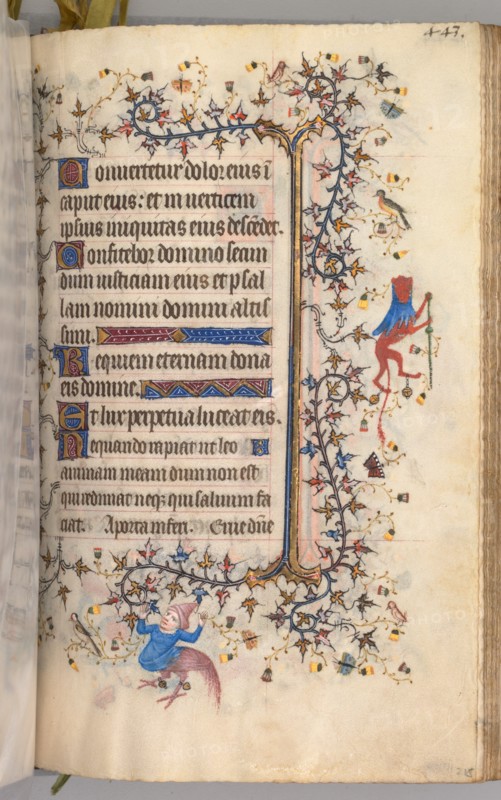 443.
Convertetur dolor eius ī
caput eius: et in uerticem
ipsius iniquitas eius descēdet.
Confitebor domino secun
dum iusticiam eius et psal
lam nomini domini altis
simi.
Requiem eternam dona
eis domine.
Et lux perpetua luceat eis.
Nequando rapiat ut leo
animam meam dum non est
qui redimat neqȝ qui saluum fa
ciat. A porta inferi. Erue dn̄e